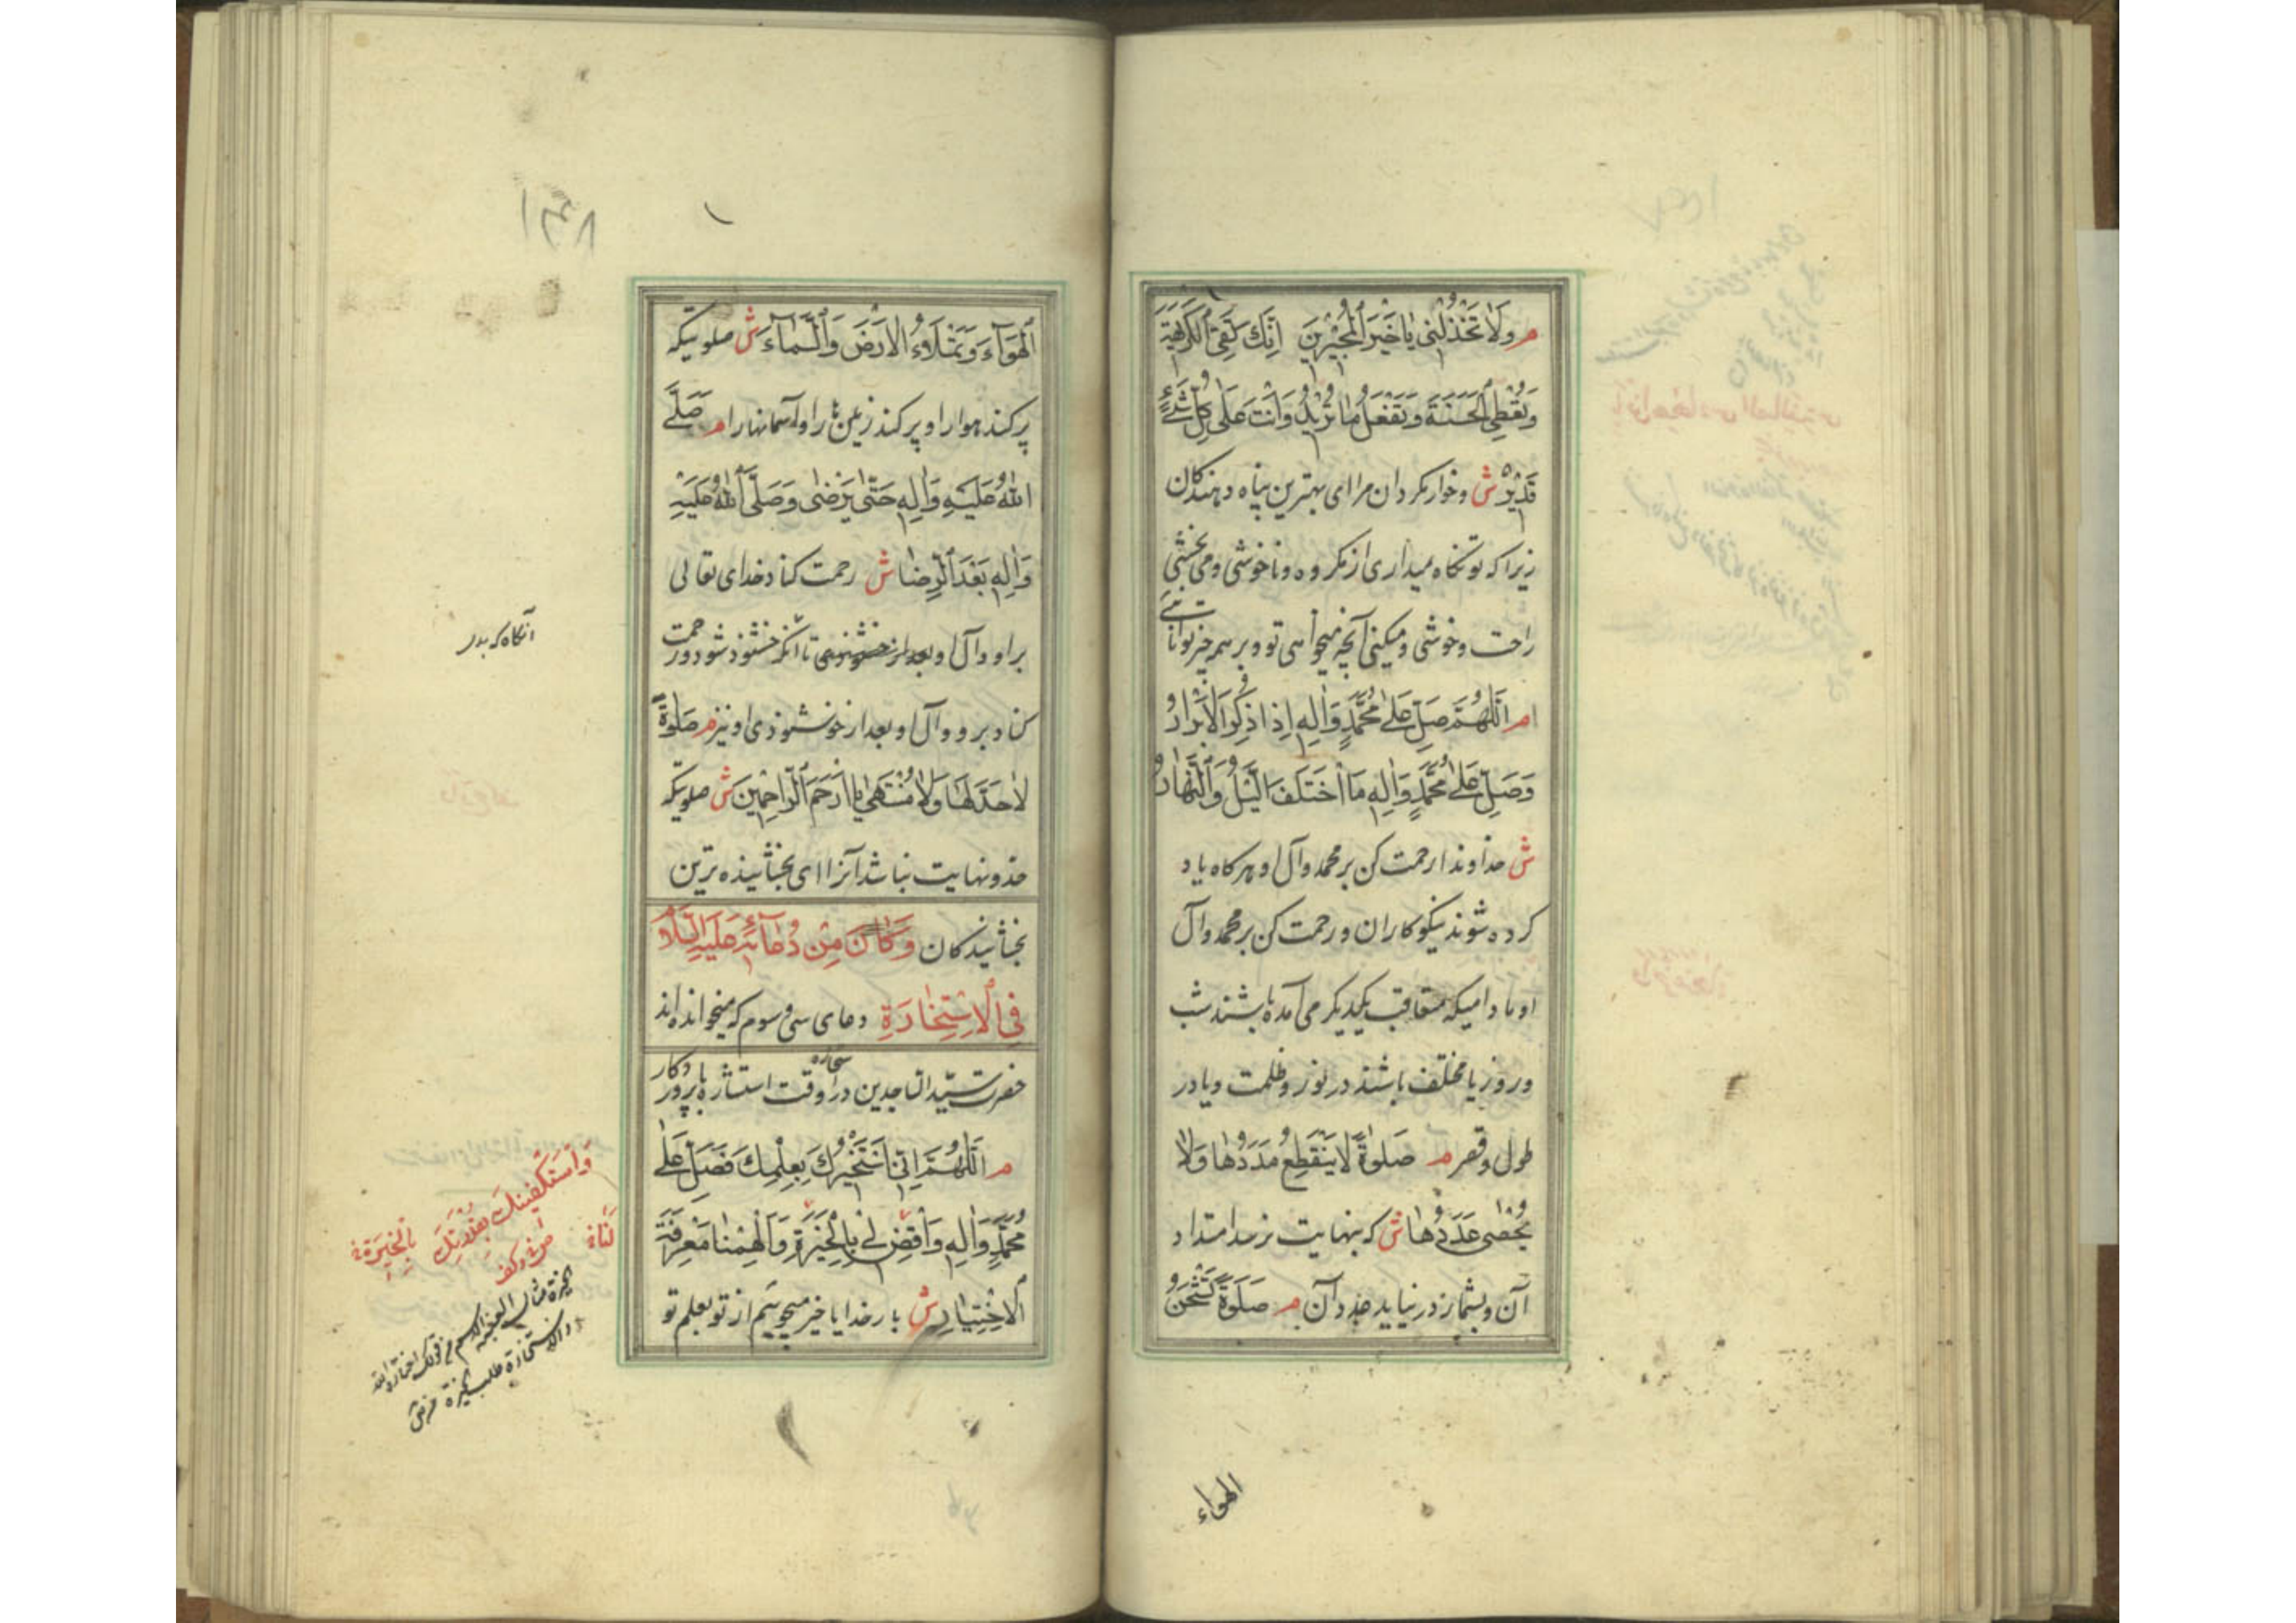 م وَلَا تَخْذُلْنِی یَا خَیْرَ الْمُجِیْرِیْنَ اِنَّكَ تَقِی الْكَرِیْهَةَ
وَتُعْطِی الْحَسَنَةَ وَتَفْعَلُ مَا تُرِیْدُ وَاَنْتَ عَلٰی كُلِّ شَیْءٍ
قَدِیْرٌ ش وخوار مکردان مرا ای بهترین پناه دهندکان
زیرا که تو نکاه میداری از مکروه و ناخوشی و می بخشی
راحت و خوشی و میکنی آنچه میخواهی تو و بر همه چیز توانائی
م اَللّٰهُمَّ صَلِّ عَلٰی مُحَمَّدٍ وَاٰلِهٖ اِذَا ذُكِرَ الْاَبْرَارُ
وَصَلِّ عَلٰی مُحَمَّدٍ وَاٰلِهٖ مَا اخْتَلَفَ الَّیْلُ وَالنَّهَارُ
ش خداوندا رحمت کن بر محمد وآل او هرکاه یاد
کرده شوند نیکوکاران و رحمت کن بر محمد وآل
او مادامیکه متعاقب یکدیکر می آمده باشند شب
وروز یا مختلف باشند در نور و ظلمت و یا در
طول و قصر م صَلٰوةً لَا یَنْقَطِعُ مَدَدُهَا وَلَا
یُحْصٰی عَدَدُهَا ش که بنهایت نرسد امتداد
آن و بشمار در نیاید عدد آن م صَلٰوةً تَشْحَنُ
الهواء
۱۳۸
اَلْهَوَآءَ وَتَمْلَاُ الْاَرْضَ وَالسَّمَآءَ ش صلوتیکه
پر کند هوا را و پر کند زمین را و آسمانها را م صَلَّی
اللّٰهُ عَلَیْهِ وَاٰلِهٖ حَتّٰی یَرْضٰی وَصَلَّی اللّٰهُ عَلَیْهِ
وَاٰلِهٖ بَعْدَ الرِّضَا ش رحمت کناد خدای تعالی
بر او و آل او تا آنکه خشنود شود و رحمت
کناد بر و و آل او بعد از خوشنودی او نیز م صَلٰوةً
لَا حَدَّ لَهَا وَلَا مُنْتَهٰی یَا اَرْحَمَ الرَّاحِمِیْنَ ش صلوتیکه
حد و نهایت نباشد آنرا ای بخشاینده ترین
بخشایندکان وَكَانَ مِنْ دُعَآئِهٖ عَلَیْهِ السَّلَامُ
فِی الْاِسْتِخَارَةِ دعای سی و سوم که میخوانده‌اند
حضرت سیّد الساجدین در وقت استخاره با پروردکار
م اَللّٰهُمَّ اِنِّی اَسْتَخِیْرُكَ بِعِلْمِكَ فَصَلِّ عَلٰی
مُحَمَّدٍ وَاٰلِهٖ وَاقْضِ لِیْ بِالْخِیَرَةِ وَاَلْهِمْنَا مَعْرِفَةَ
الْاِخْتِیَارِ ش بار خدایا خیر میجویم از تو بعلم تو
آنکاه که بدر
وَاَسْتَكْفِیْنُكَ بِقُدْرَتِكَ
بِالْخِیَرَةِ
لَنَا
والاستخارة طلب الخیرة